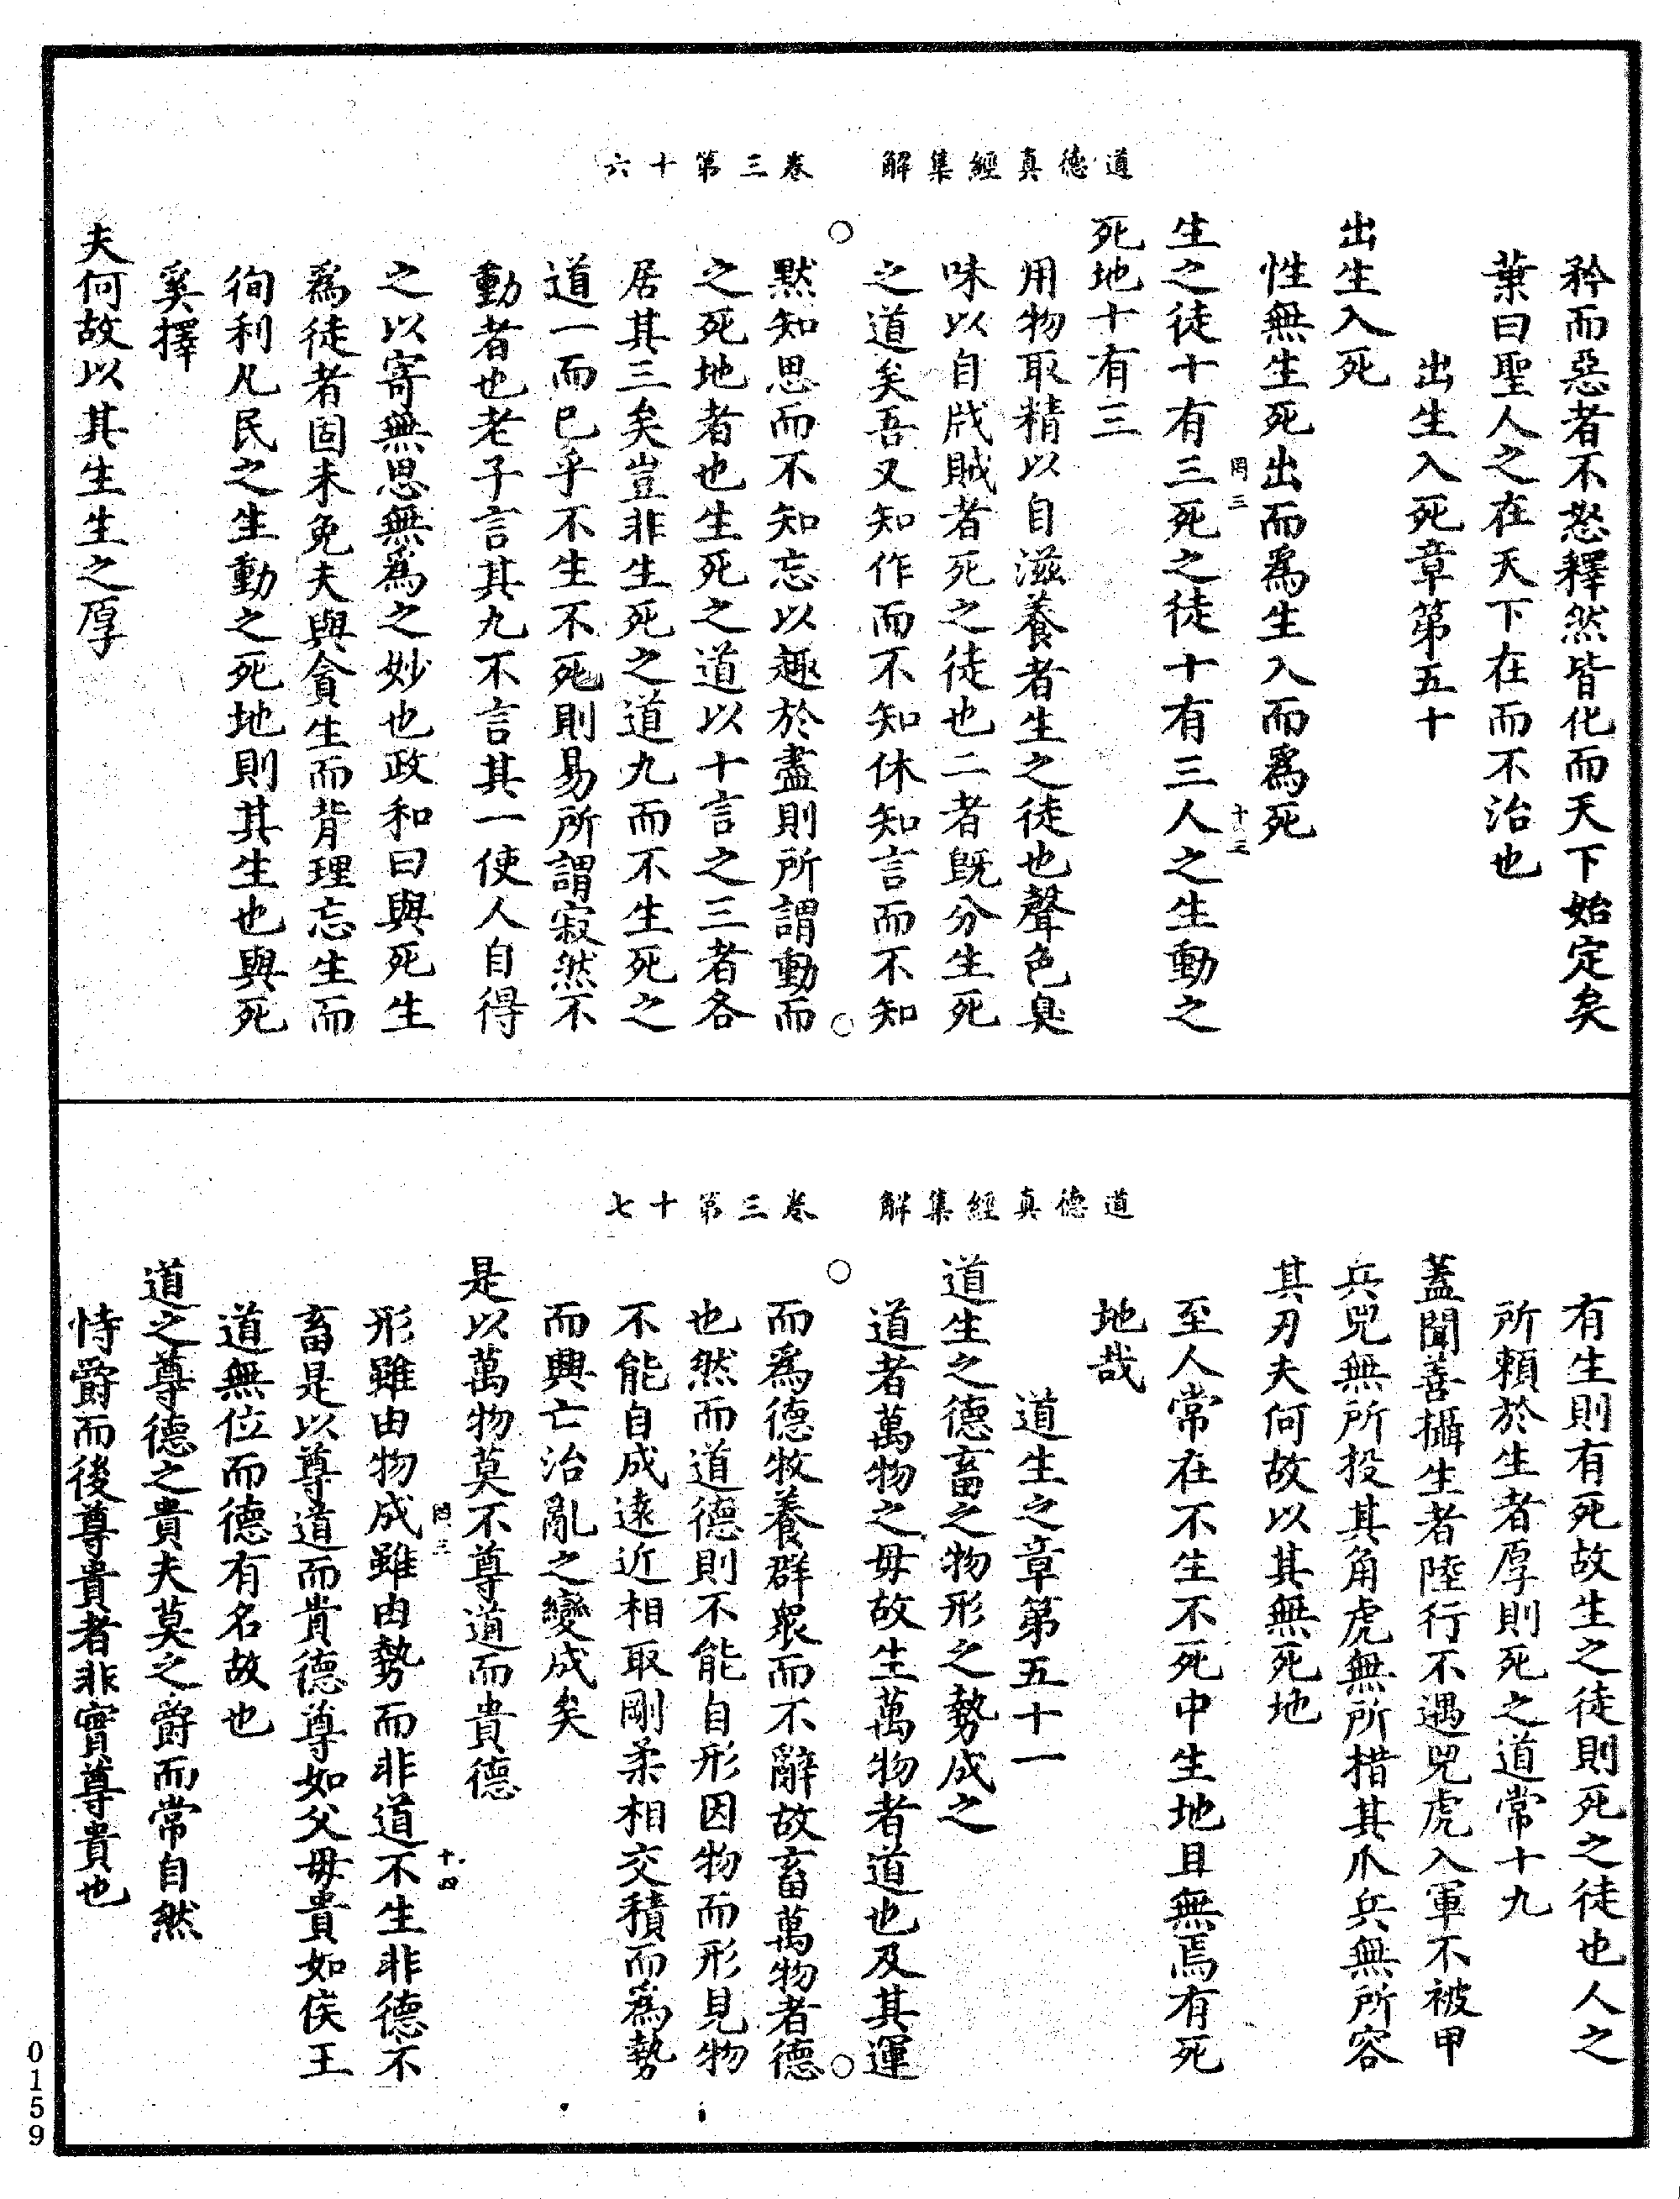 道德真經集解　卷三第十六
矜而惡者不怒釋然皆化而天下始定矣
葉曰聖人之在天下在而不治也
出生入死章第五十
出生入死
性無生死出而爲生入而爲死
罔三　十三
生之徒十有三死之徒十有三人之生動之
死地十有三
用物取精以自滋養者生之徒也聲色臭
味以自戕賊者死之徒也二者旣分生死
之道矣吾又知作而不知休知言而不知
默知思而不知忘以趣於盡則所謂動而
之死地者也生死之道以十言之三者各
居其三矣豈非生死之道九而不生死之
道一而已乎不生不死則易所謂寂然不
動者也老子言其九不言其一使人自得
之以寄無思無爲之妙也政和曰與死生
爲徒者固未免夫與貪生而背理忘生而
徇利凡民之生動之死地則其生也與死
奚擇
夫何故以其生生之厚
道德真經集解　卷三第十七
有生則有死故生之徒則死之徒也人之
所賴於生者厚則死之道常十九
蓋聞善攝生者陸行不遇兕虎入軍不被甲
兵兕無所投其角虎無所措其爪兵無所容
其刃夫何故以其無死地
至人常在不生不死中生地且無焉有死
地哉
道生之章第五十一
道生之德畜之物形之勢成之
道者萬物之母故生萬物者道也及其運
而爲德牧養群衆而不辭故畜萬物者德
也然而道德則不能自形因物而形見物
不能自成遠近相取剛柔相交積而爲勢
而興亡治亂之變成矣
是以萬物莫不尊道而貴德
罔三　十四
形雖由物成雖由勢而非道不生非德不
畜是以尊道而貴德尊如父母貴如侯王
道無位而德有名故也
道之尊德之貴夫莫之爵而常自然
恃爵而後尊貴者非實尊貴也
0159